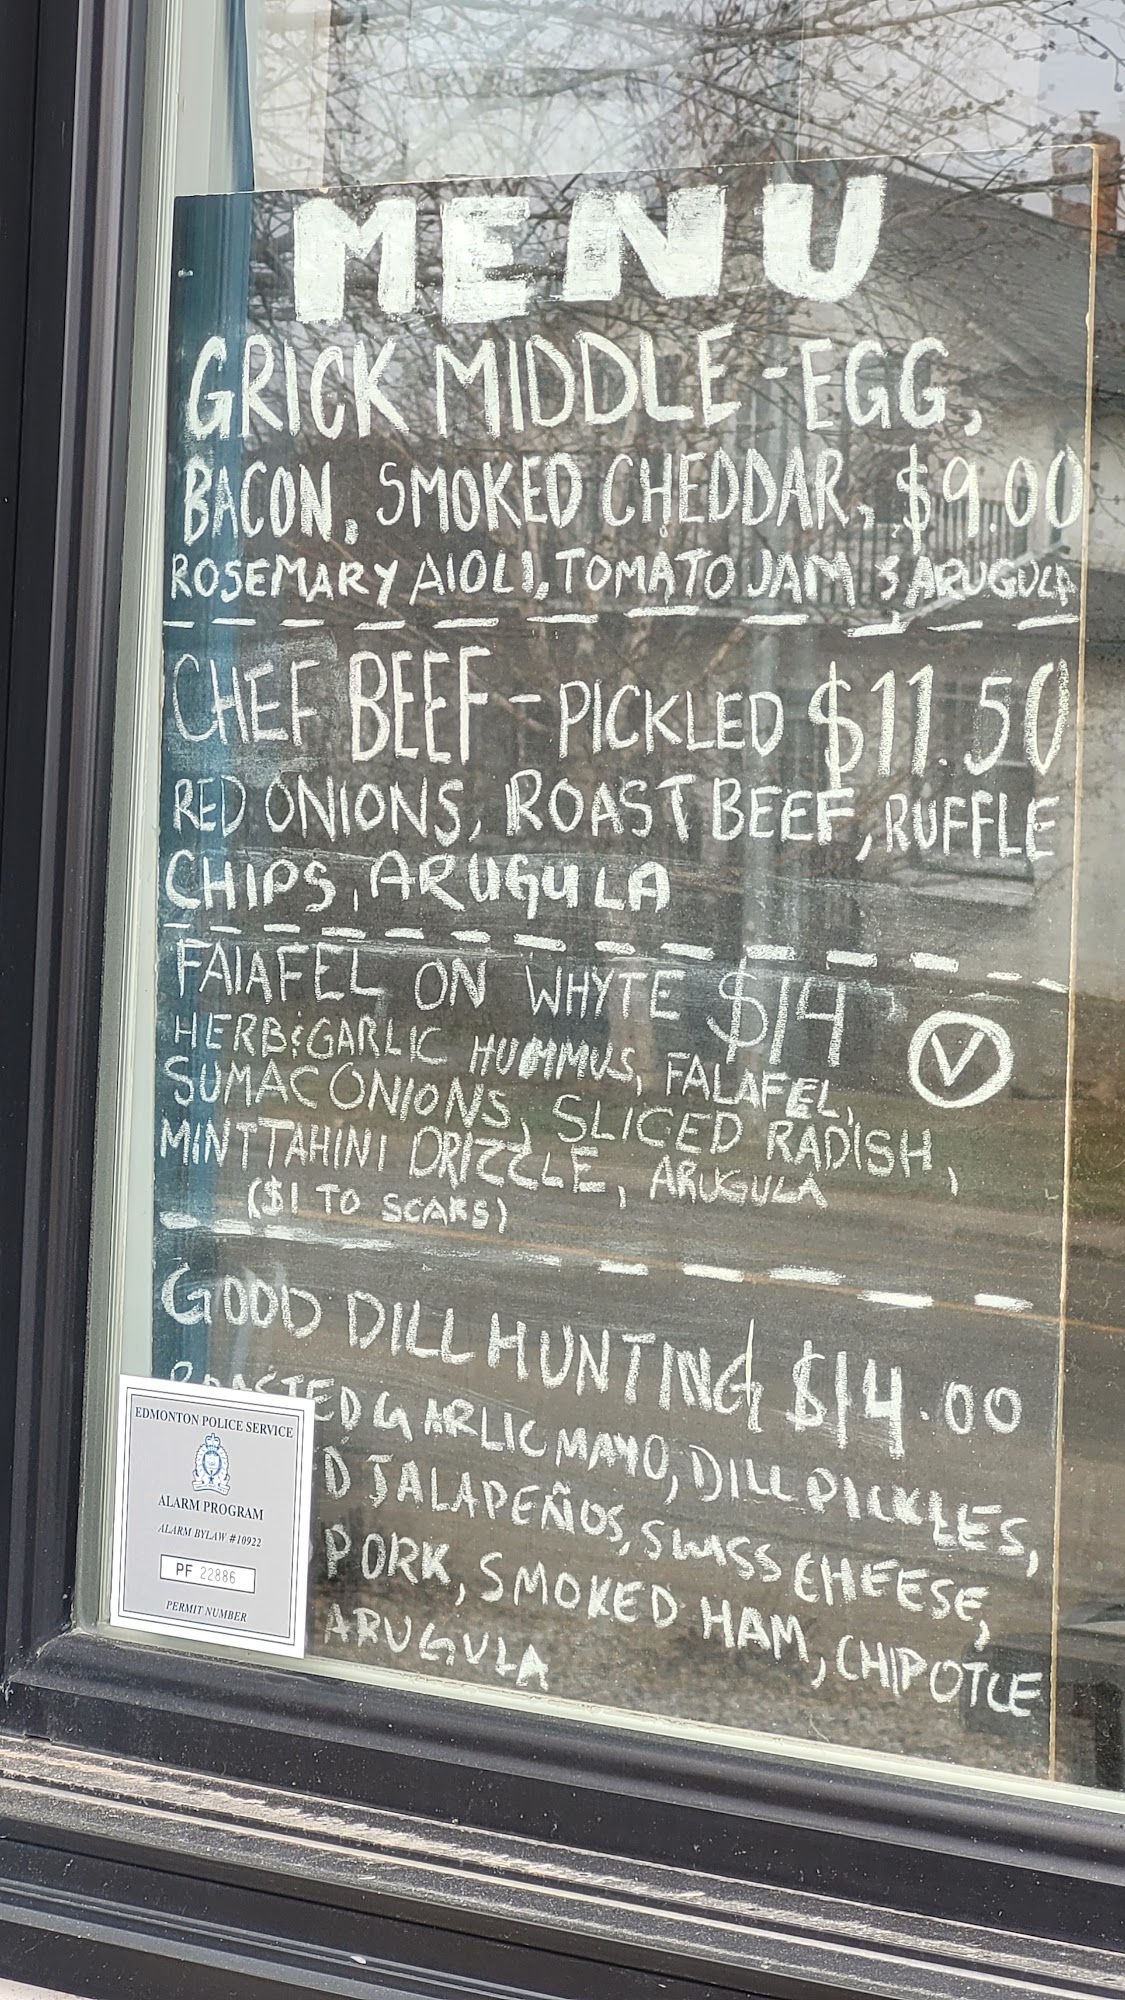 MENU
GRICK MIDDLE - EGG,
BACON, SMOKED CHEDDAR, $9.00
ROSEMARY AIOLI, TOMATO JAM & ARUGULA
CHEF BEEF - PICKLED $11.50
RED ONIONS, ROAST BEEF, RUFFLE
CHIPS, ARUGULA
FALAFEL ON WHYTE $14
HERB & GARLIC HUMMUS, FALAFEL, V
SUMAC ONIONS, SLICED RADISH,
MINT TAHINI DRIZZLE, ARUGULA
($1 TO SCARS)
GOOD DILL HUNTING $14.00
ROASTED GARLIC MAYO, DILL PICKLES,
D JALAPEÑOS, SWISS CHEESE,
PORK, SMOKED HAM, CHIPOTLE
ARUGULA
EDMONTON POLICE SERVICE
ALARM PROGRAM
ALARM BYLAW #10922
PF 22886
PERMIT NUMBER